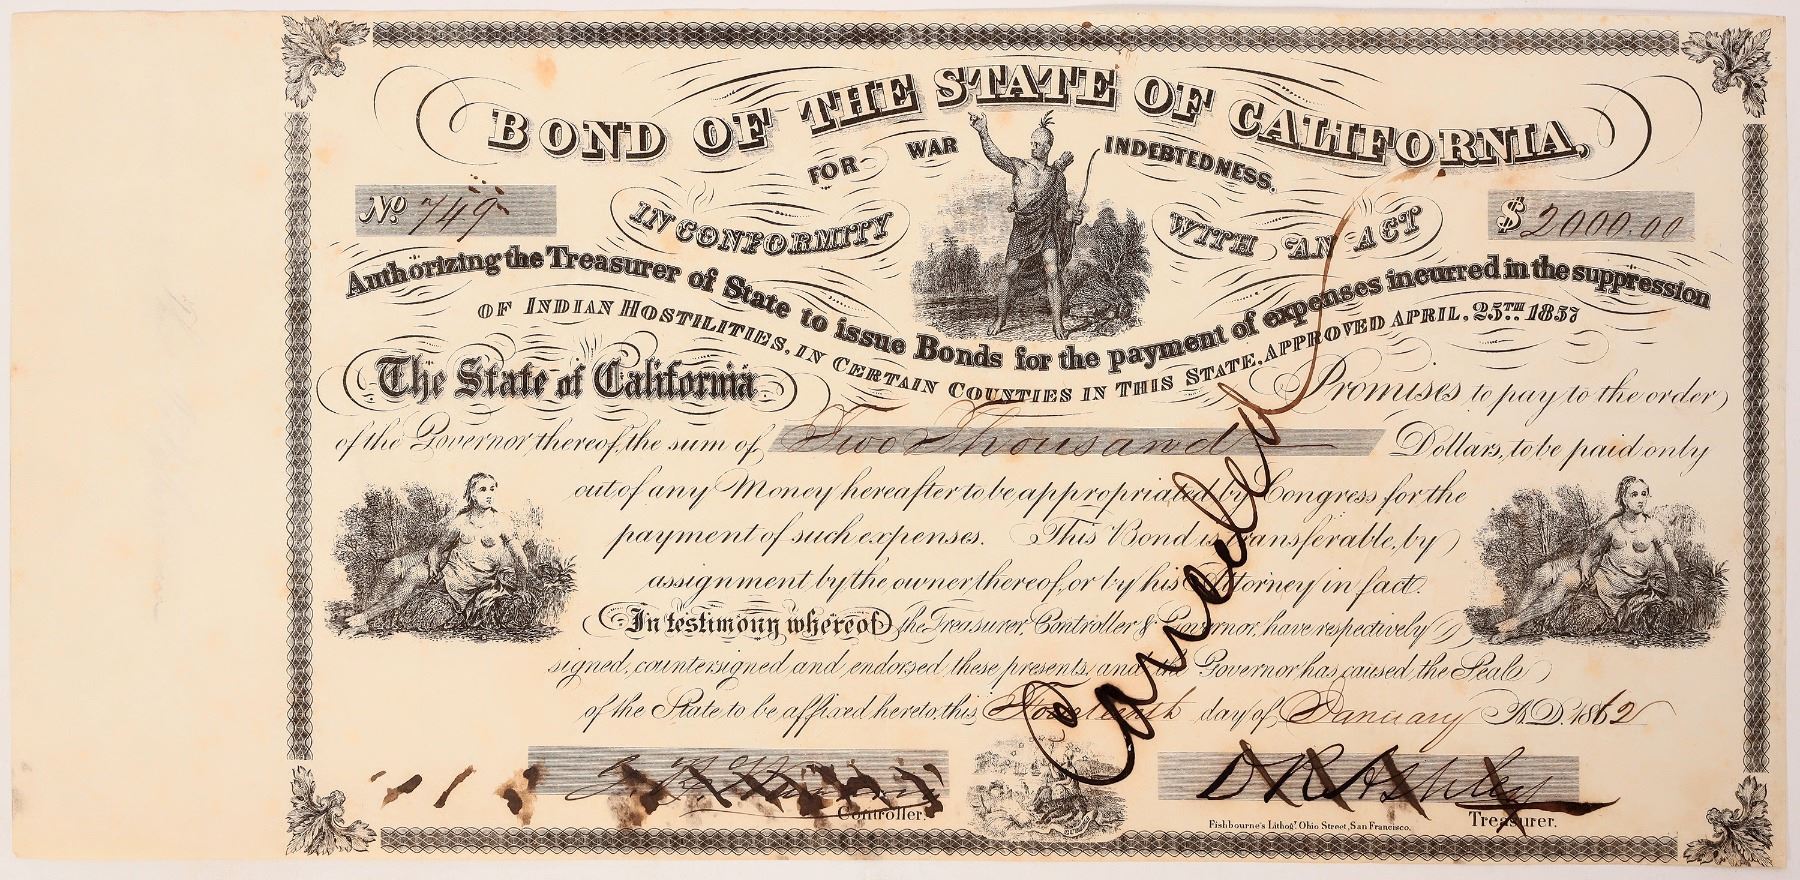 BOND OF THE STATE OF CALIFORNIA,
FOR WAR INDEBTEDNESS.
No 749
$ 2000.00
IN CONFORMITY WITH AN ACT
Authorizing the Treasurer of State to issue Bonds for the payment of expenses incurred in the suppression
OF INDIAN HOSTILITIES, IN CERTAIN COUNTIES IN THIS STATE, APPROVED APRIL, 25TH. 1857
The State of California Promises to pay to the order
of the Governor thereof, the sum of Two Thousand Dollars, to be paid only
out of any Money hereafter to be appropriated by Congress for the
payment of such expenses. This Bond is transferable, by
assignment by the owner thereof, or by his Attorney in fact.
In testimony whereof the Treasurer, Controller & Governor, have respectively
signed, countersigned and endorsed these presents, and the Governor has caused the Seal
of the State to be affixed hereto, this day of January A.D. 1862
Cancelled
Controller.
D R Ashley
Treasurer.
Fishbourne's Lithogy. Ohio Street, San Francisco.